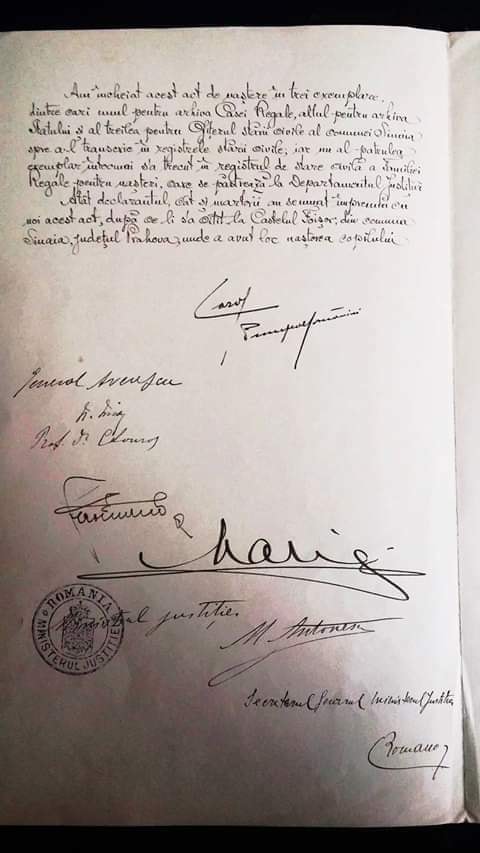 Am încheiat acest act de naștere în trei exemplare,
dintre cari unul pentru arhiva Casei Regale, altul pentru arhiva
Statului și al treilea pentru Ofițerul stării civile al comunei Sinaia
spre a-l transcrie în registrele stării civile; iar un al patrulea
exemplar întocmai s'a trecut în registrul de stare civilă a Familiei
Regale pentru nașteri, care se păstrează la Departamentul Justiției
Atât declarantul, cât și martorii, au semnat împreună cu
noi acest act, după ce li s'a citit la Castelul Foișor, din comuna
Sinaia, județul Prahova, unde a avut loc nașterea copilului
Carol
General Averescu
Prof. Dr.
Ferdinand
Maria
Ministrul justiției
M Antonescu
ROMANIA
MINISTERUL JUSTITIEI
Secretarul General Ministerul Justiției